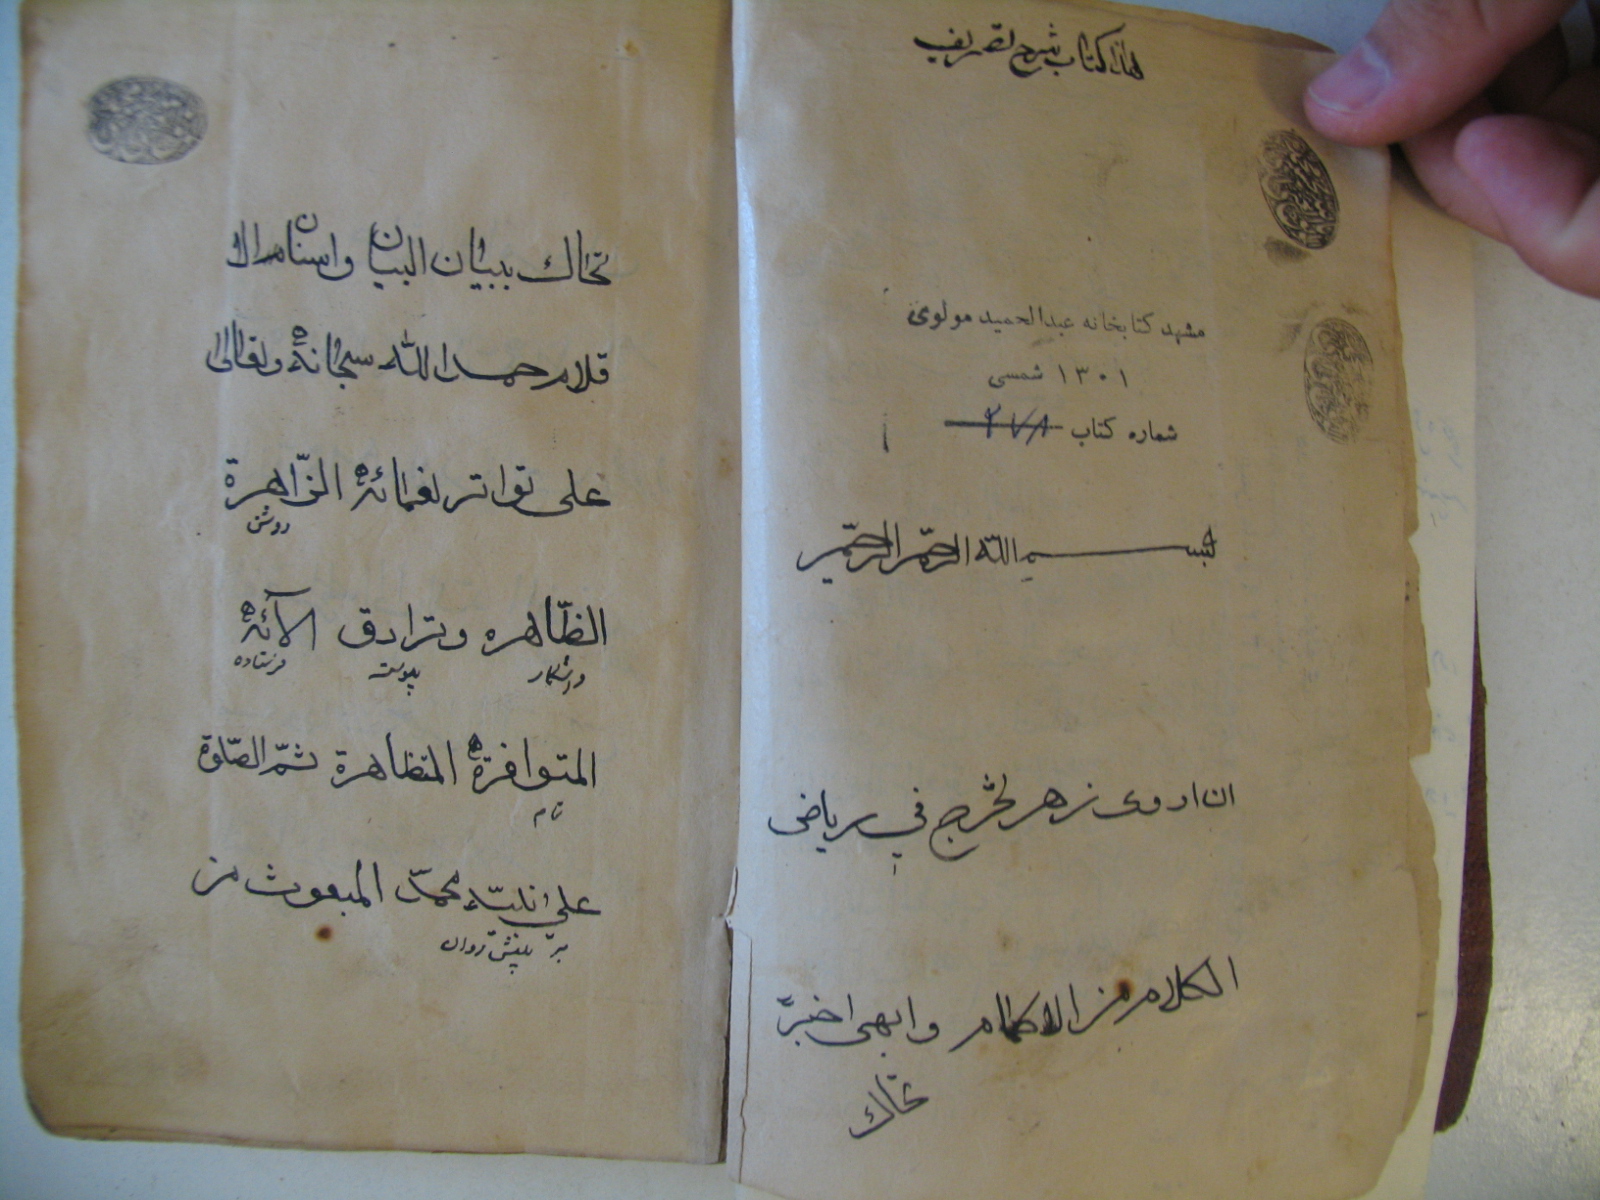 هذا كتاب شرح تصريف
مشهد كتابخانه عبدالحميد مولوى
١٣٠١ شمسى
شماره كتاب ٢٧٨
بسم الله الرحمن الرحيم
ان اروى زهر تخرج في رياض
الكلام من الاكمام وابهى احبر
تحاك
تحاك ببنان البيان واسنان الا
قلام حمد الله سبحانه وتعالى
على تواتر نعمائه الزّاهرة
روشن
الظّاهره وترادف الآئه
واشكار پيوسته فرستاده
المتوافرة المتظاهرة ثمّ الصّلوة
تام
على نبيّه محمّد المبعوث من
بر